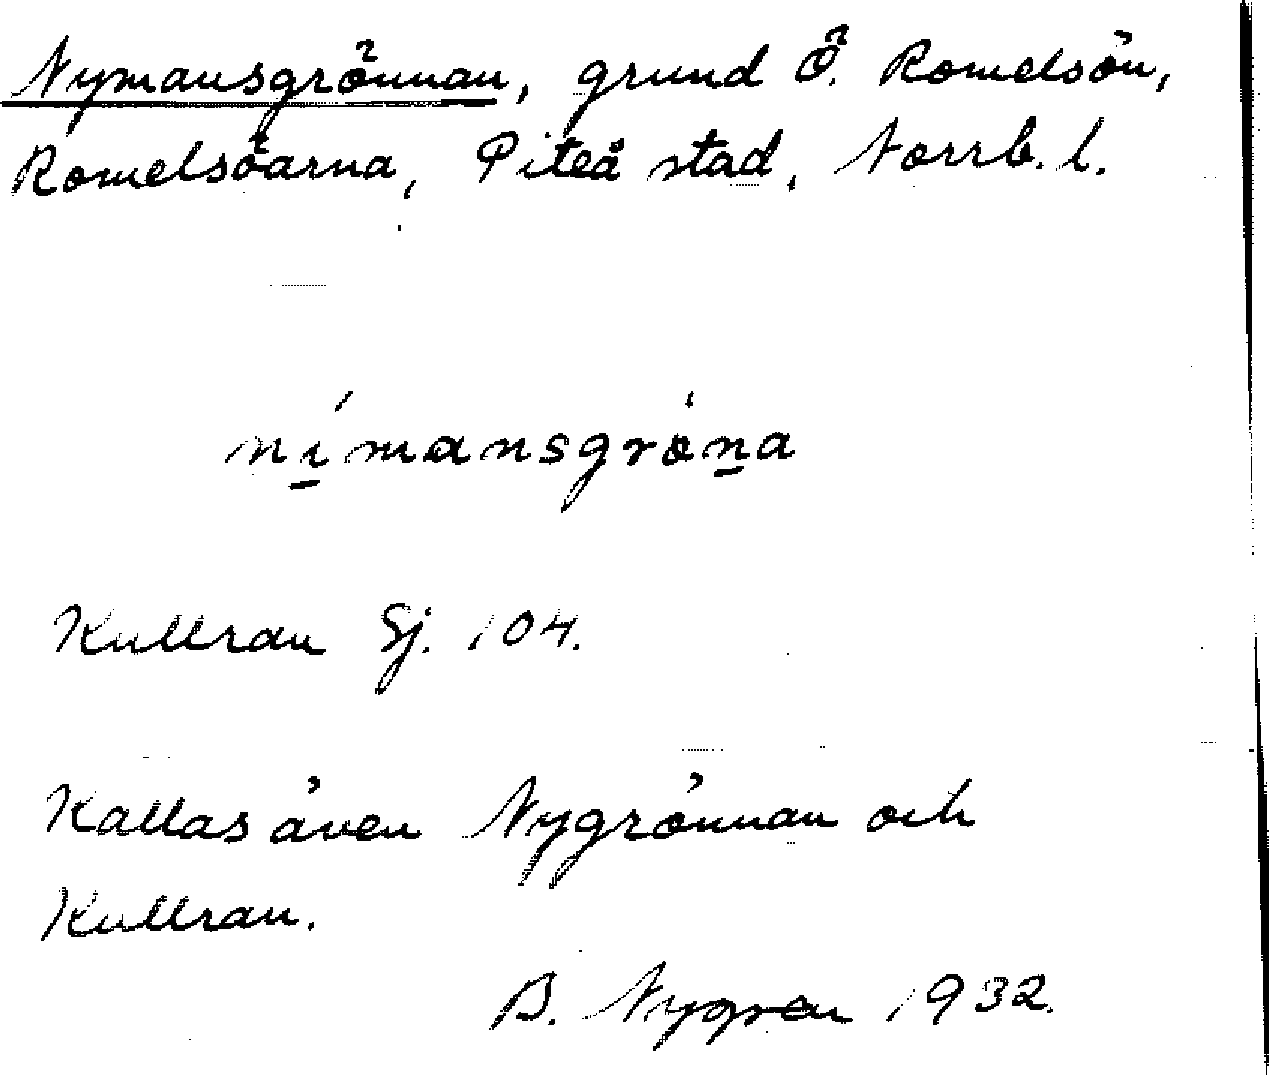 Nymansgrönnan, grund Ö. Romelsön,
Romelsöarna, Piteå stad, Norrb. l.
ni̱mansgrön̲a
Kullran Sj. 104.
Kallas även Nygrönnan och
Kullran.
B. Nygren 1932.